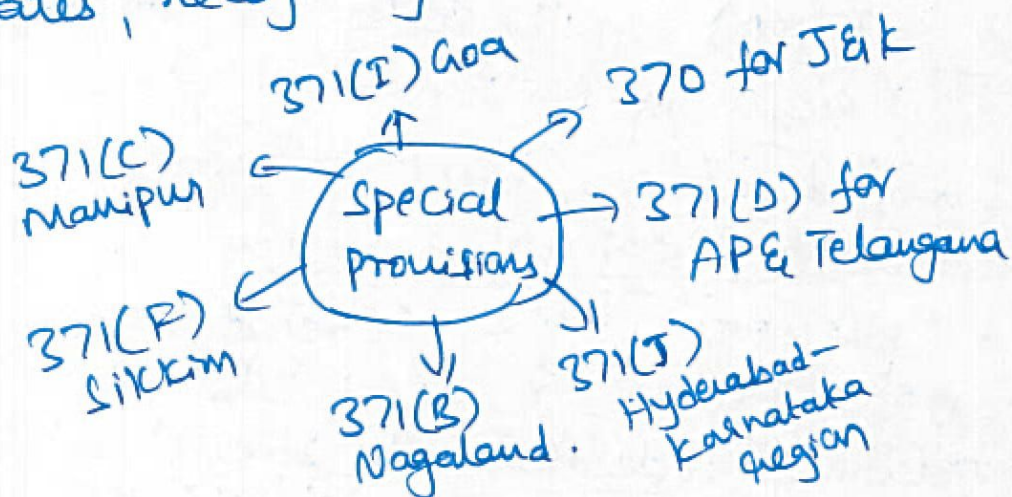 371(I) Goa
370 for J&K
371(C)
Manipur
Special
Provisions
371(D) for
AP & Telangana
371(F)
Sikkim
371(B)
Nagaland.
371(J)
Hyderabad-
Karnataka
region